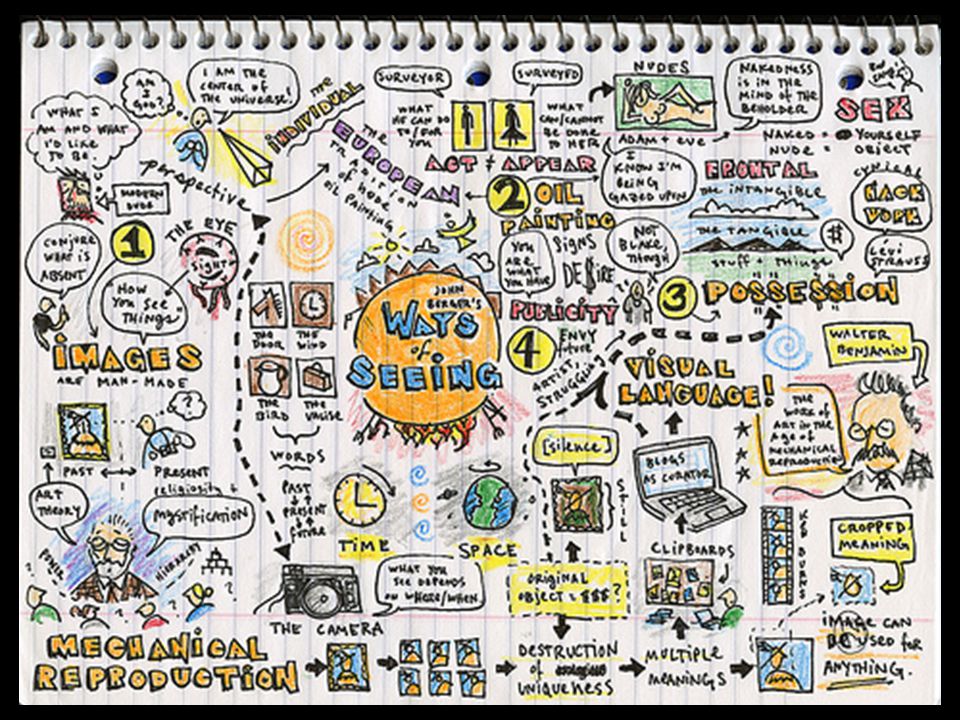 AM
I
GOD?
I AM THE
CENTER OF
THE UNIVERSE!
WHAT I
AM AND WHAT
I'D LIKE
TO BE.
MODERN
DUDE
perspective
THE
INDIVIDUAL
THE
EUROPEAN
TRADITION
of nude
OIL PAINTING
SURVEYOR
SURVEYED
WHAT
HE CAN DO
TO/FOR
YOU
WHAT
CAN/CANNOT
BE DONE
TO HER
ACT ≠ APPEAR
NUDES
ADAM + eve
I
KNOW I'M
BEING
GAZED UPON
NAKEDNESS
IS IN THE
MIND OF THE
BEHOLDER
SEX
NAKED = YOURSELF
NUDE = OBJECT
FRONTAL
CYNICAL
HACK
WORK
LEVI
STRAUSS
THE INTANGIBLE
THE TANGIBLE
STUFF + THINGS
$
3 POSSE$$ION
2 OIL
PAINTING
YOU
ARE
WHAT
YOU HAVE
SIGNS
DE$IRE
NOT
BLAKE,
THOUGH
PUBLICITY
4
ENVY
future
ARTIST,
STRUGGLING
1
THE EYE
SIGHT
CONJURE
WHAT IS
ABSENT
"HOW
YOU SEE
THINGS"
IMAGES
ARE MAN-MADE
JOHN
BERGER'S
WAYS
of
SEEING
THE
DOOR
THE
WIND
THE
BIRD
THE
VALISE
WORDS
PAST
PRESENT
future
TIME
SPACE
THE CAMERA
WHAT YOU
SEE DEPENDS
ON WHERE/WHEN
?
PAST
PRESENT
religiosity +
mystification
ART
THEORY
POWER
HIERARCHY
VISUAL
LANGUAGE!
WALTER
BENJAMIN
THE
WORK OF
ART IN THE
AGE OF
MECHANICAL
REPRODUCTION
[silence]
STILL
BLOGS
AS CURATOR
CLIPBOARDS
KEN BURNS
CROPPED
MEANING
ORIGINAL
OBJECT = $$$?
MECHANICAL
REPRODUCTION
DESTRUCTION
of
UNIQUENESS
MULTIPLE
MEANINGS
IMAGE CAN
BE USED for
ANYTHING.